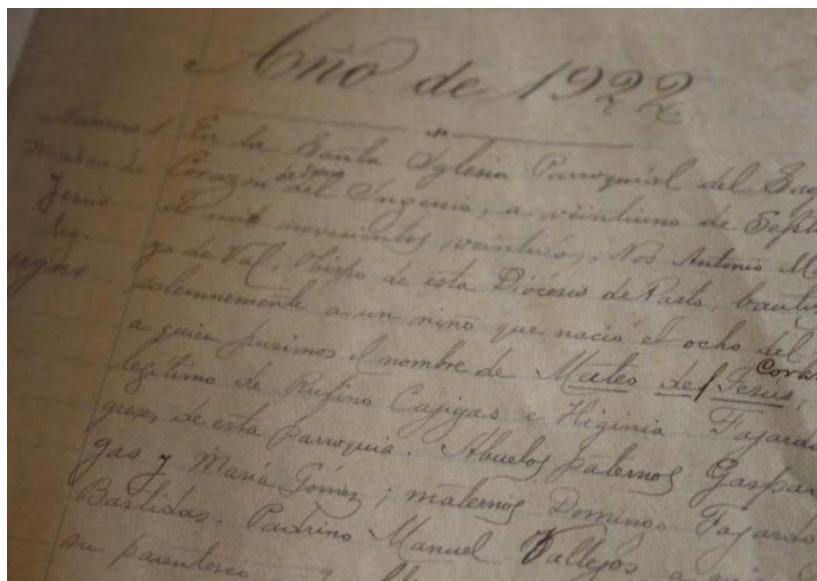 Año de 1922
Numero 1 En la Santa Yglesia Parroquial del Sag
Mateo de Corazon de Jesús del Ingenio, a veintiuno de Septi
Jesús de mil novecientos veintidos, Nos Antonio M
leg. go de Val, Obispo de esta Diócesis de Pasto, bauti
solemnemente a un niño que nació el ocho del
a quien pusimos el nombre de Mateo del Coraz Jesús,
legítimo de Rufino Cajigas e Higinia Fajardo
greses de esta parroquia. Abuelos paternos Gaspar
gas y María Gómez; maternos Domingo Fajardo
Bastidas. Padrino Manuel Vallejos a quien
su parentesco y